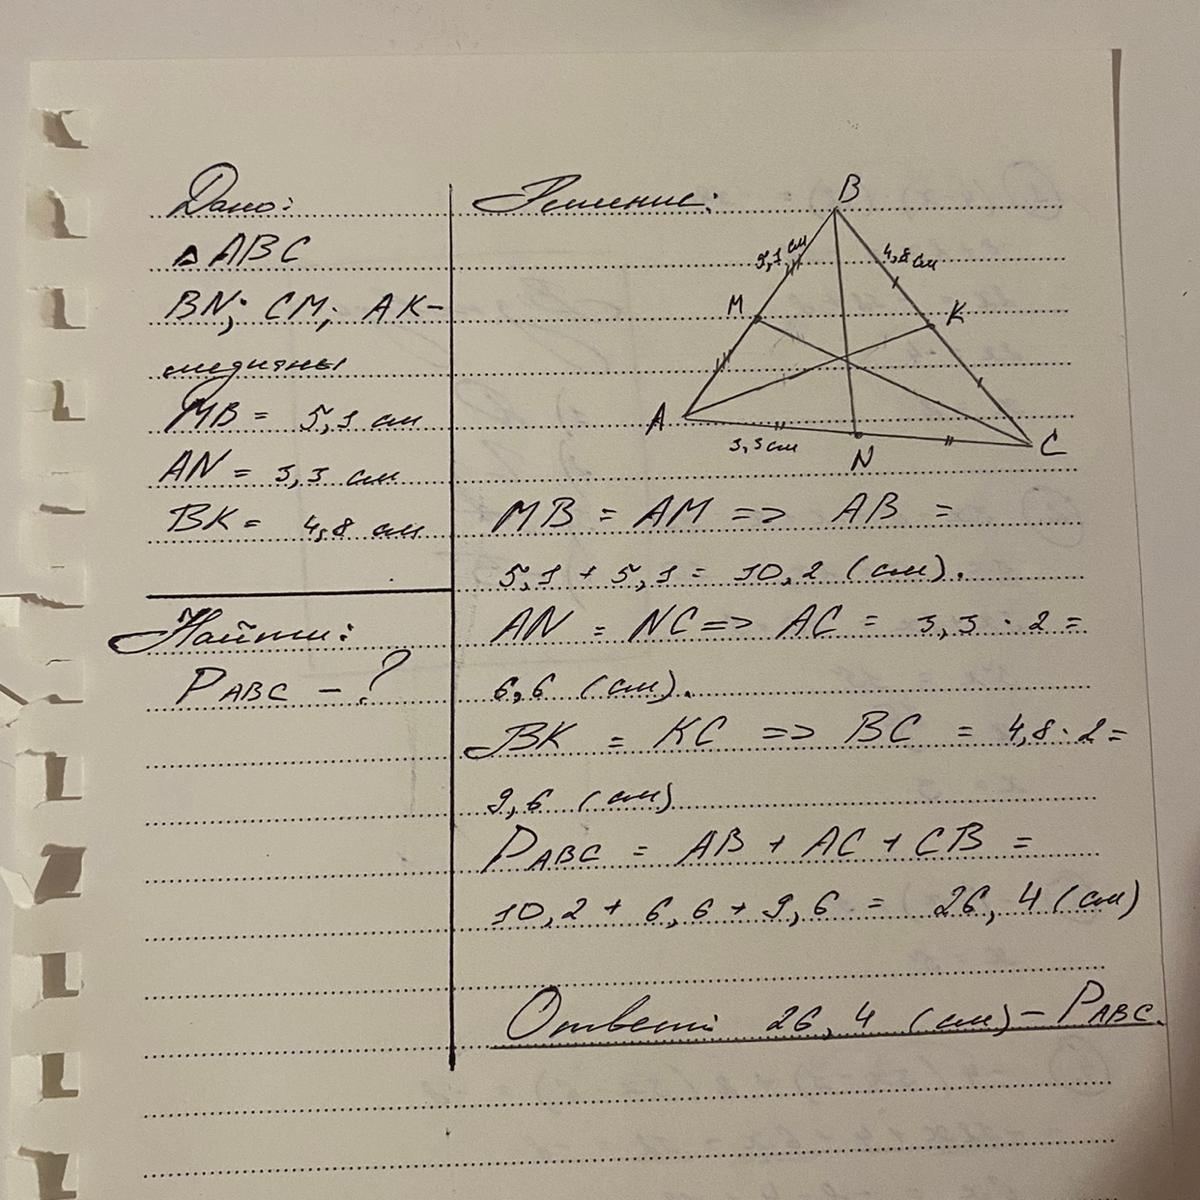 Дано:
△ ABC
BN; CM; AK-
медианы
MB = 5,1 см
AN = 3,3 см
BK = 4,8 см
Найти:
PABC - ?
Решение:
B
5,1 см
4,8 см
M
K
A
3,3 см
N
C
MB = AM => AB =
5,1 + 5,1 = 10,2 (см).
AN = NC => AC = 3,3 · 2 =
6,6 (см).
BK = KC => BC = 4,8 · 2 =
9,6 (см)
PABC = AB + AC + CB =
10,2 + 6,6 + 9,6 = 26,4 (см)
Ответ: 26,4 (см) - PABC.